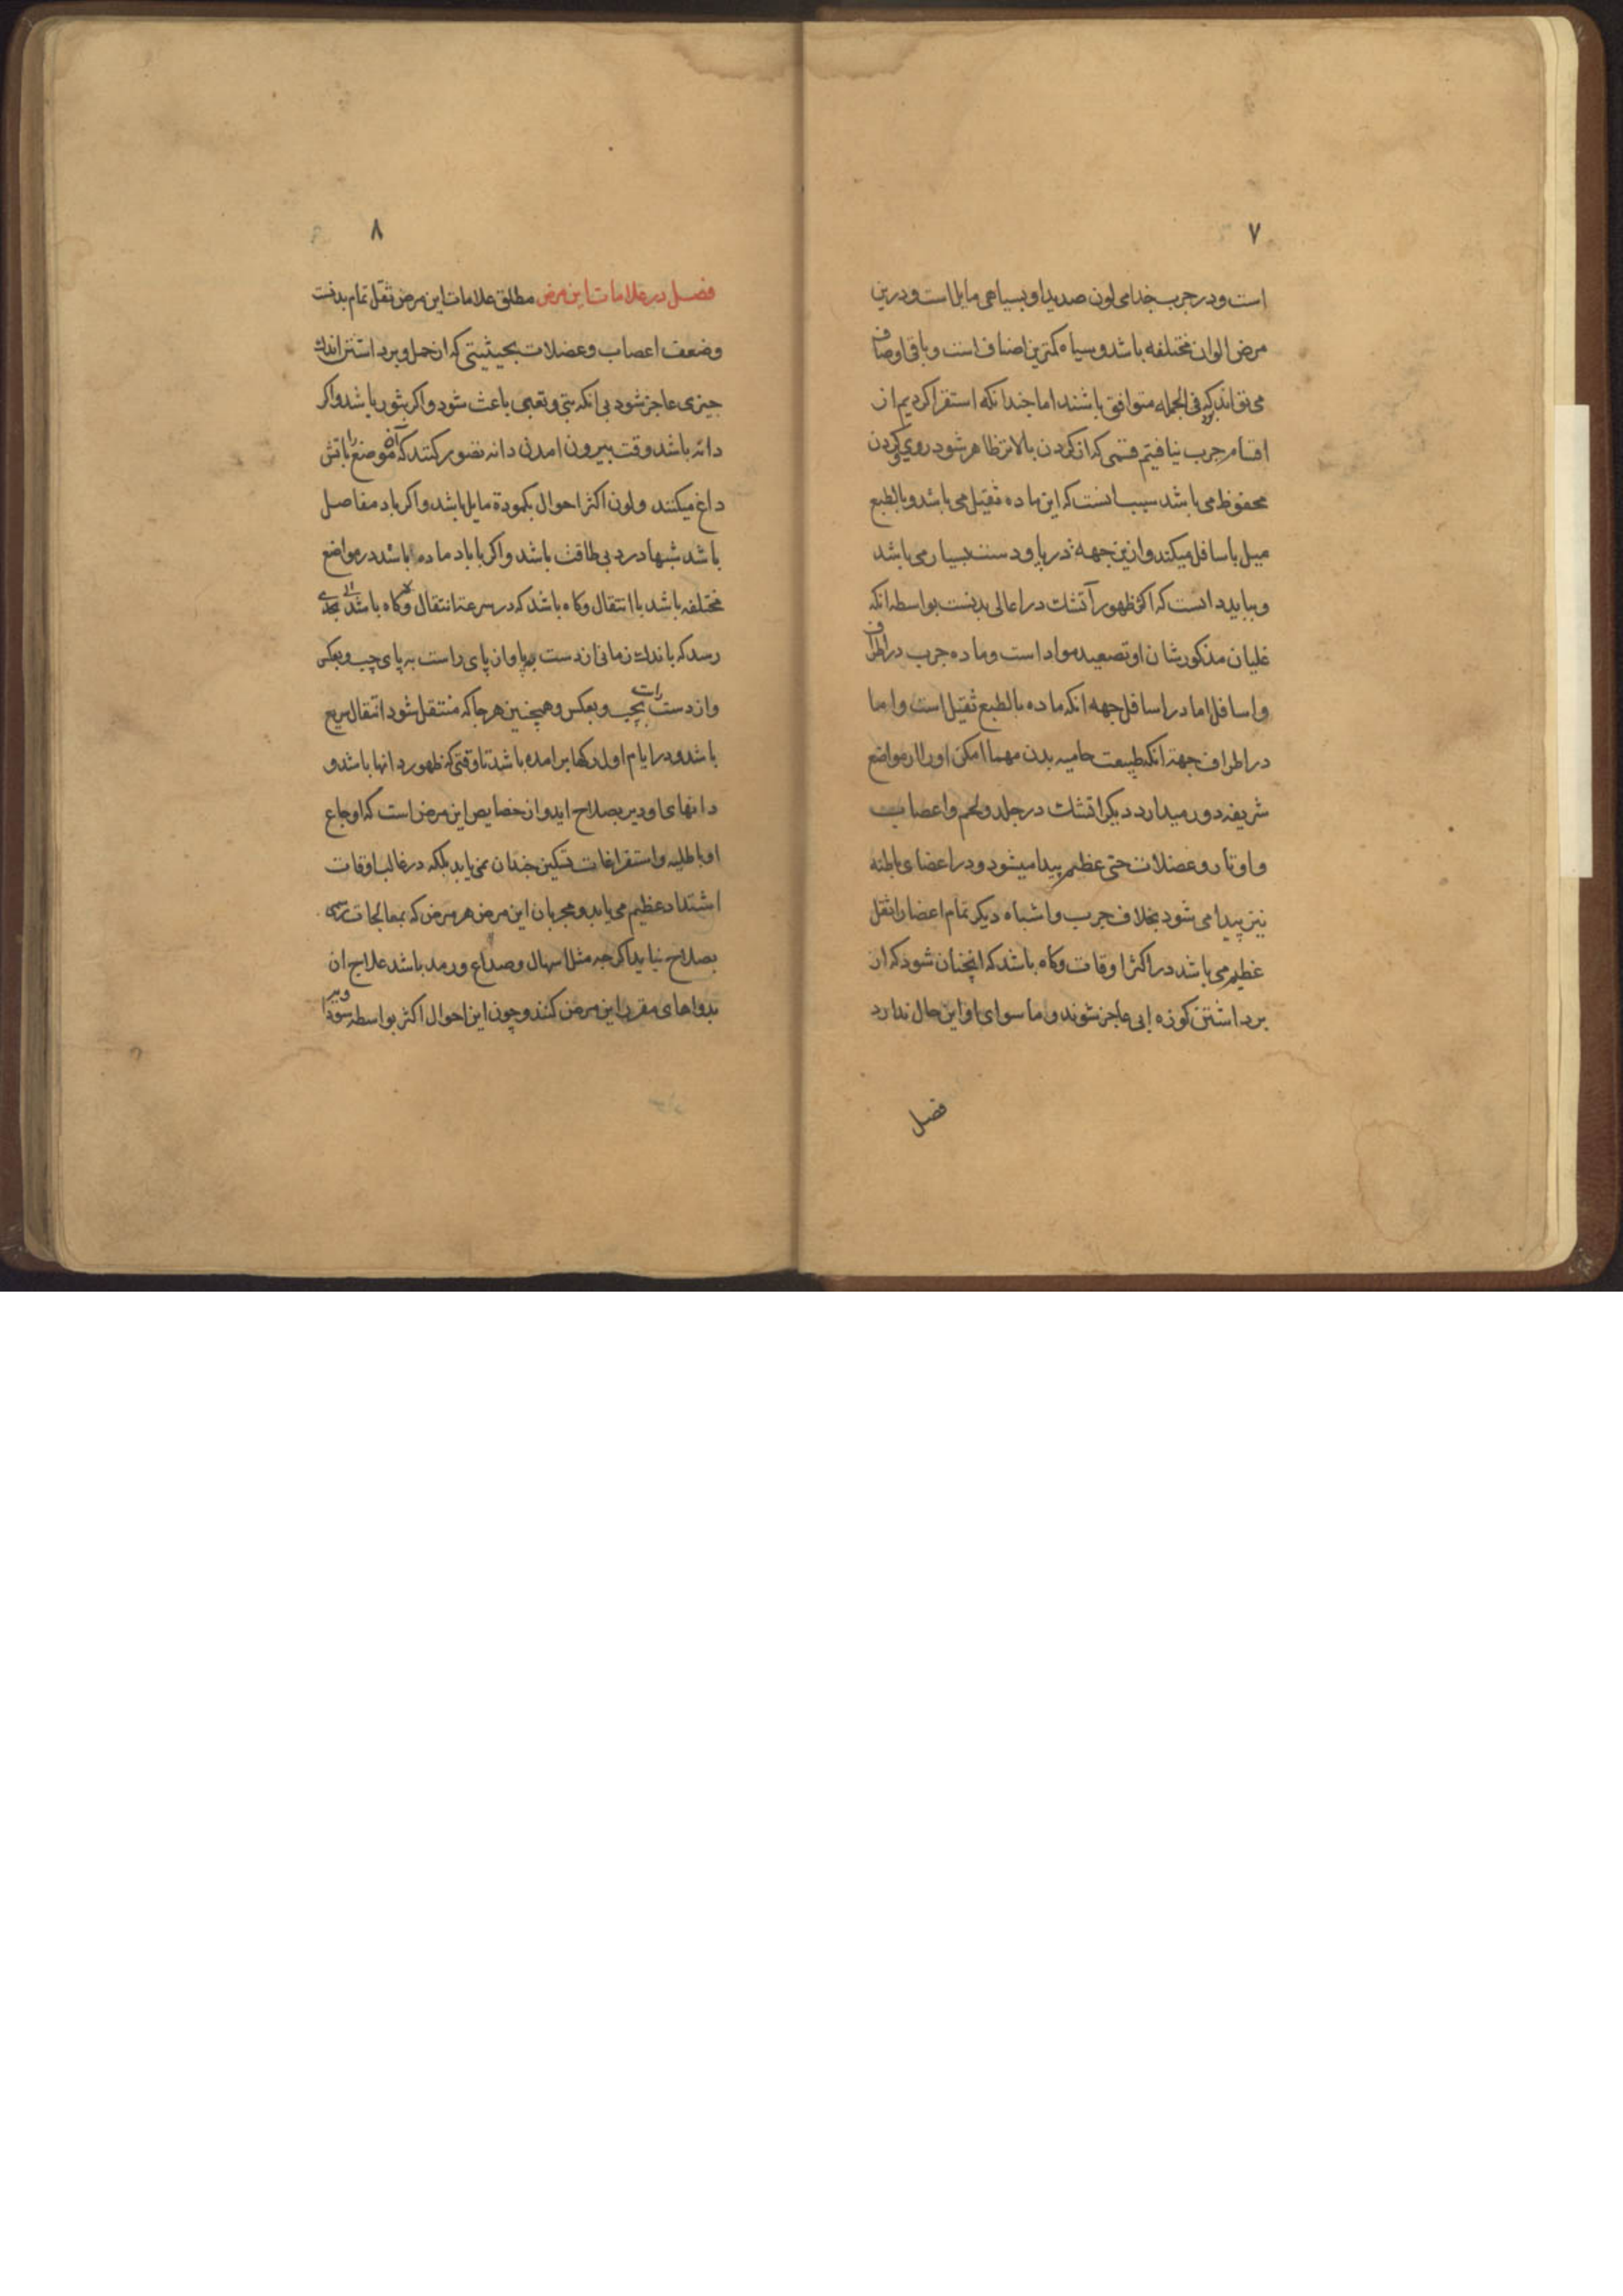 ۷
است و در جرب جذامی لون صدید او بسیاهی مایل است و درین
مرض الوان مختلفه باشد و سیاه کمترین اصناف است و باقی اوصاف
می تواند که فی الجمله متوافق باشند اما چندانکه استقرا کردیم از
اقسام جرب نیافتیم قسمی که از کردن بالاتر ظاهر شود روی و کردن
محفوظ می باشد سبب انست که این ماده ثقیل می باشد و بالطبع
میل باسافل میکند و ازین جهة در پا و دست بسیار می باشد
و بباید دانست که اکثر ظهور آتشك در اعالی بدنست بواسطه انکه
غلیان مذکور شان او تصعید مواد است و ماده جرب در اطراف
و اسافل اما در اسافل جهه انکه ماده بالطبع ثقیل است و اما
در اطراف جهة انکه طبیعت حامیه بدن مهما امکن او را از مواضع
شریفه دور میدارد دیکر اتشك در جلد و لحم و اعصاب
و اوتار و عضلات حتی عظم پیدا میشود و در اعضای باطنه
نیز پیدا می شود بخلاف جرب و اشباه دیکر تمام اعضا را ثقل
عظیم می باشد در اکثر اوقات و کاه باشد که انچنان شود که از
برداشتن کوزه ابی عاجز شوند و ما سوای او این حال ندارد
فصل
۸
فصل در علامات این مرض مطلق علامات این مرض ثقل تمام بدنست
و ضعف اعصاب و عضلات بحیثیتی که از حمل و برداشتن اندك
چیزی عاجز شود بی انکه تبی و تعبی باعث شود و اکر بثور باشد و اکر
دانه باشد وقت بیرون امدن دانه تصور کنند که آن موضع را باتش
داغ میکنند و لون اکثر احوال بکمودة مایل باشد و اکر باد مفاصل
باشد شبها درد بی طاقت باشد و اکر با باد ماده باشد در مواضع
مختلفه باشد با انتقال و کاه باشد که در سرعة انتقال و کاه باشد بحدی
رسد که باندك زمانی از دست بپا و از پای راست به پای چپ و بعکس
و از دست راست بچپ و بعکس و همچنین هر جا که منتقل شود انتقال سریع
باشد و در ایام اول رکها برامده باشد تا وقتی که ظهور دانها باشد و
دانهای او دیر بصلاح اید و از خصایص این مرض است که اوجاع
او باطلیه و استفراغات تسکین چندان نمی یابد بلکه در غالب اوقات
اشتداد عظیم می یابد و مجربان این مرض هر مرض که بمعالجات رسمی
بصلاح نیاید اکرچه مثل اسهال و صداع و رمد باشد علاج ان
بدواهای مقرر این مرض کنند و چون این احوال اکثر بواسطه